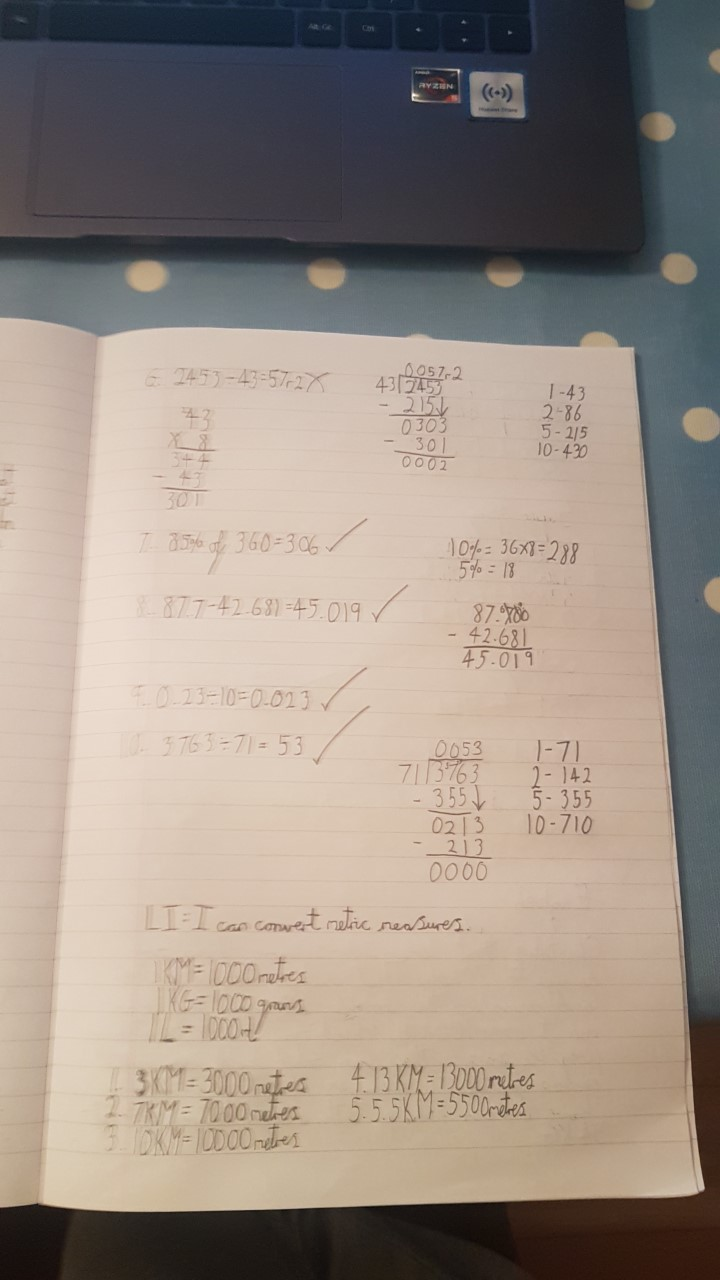 Alt Gr
Ctrl
AMD
RYZEN
5
Huawei Share
6. 2453-43=57r2X
43
x 8
344
- 43
301
0057r2
43 2453
- 215↓
0303
- 301
0002
1-43
2-86
5-215
10-430
7. 85% of 360=306 ✓
10%= 36x8=288
5% = 18
8. 87.7-42.681=45.019 ✓
- 42.681
45.019
9. 0.23÷10=0.023 ✓
10. 3763÷71= 53 ✓
0053
71 3763
- 355↓
0213
- 213
0000
1-71
2-142
5-355
10-710
LI=I can convert metric measures.
1KM=1000metres
1KG=1000grams
1L = 1000ml
1. 3KM=3000metres
2. 7KM=7000metres
3. 10KM=10000metres
4.13KM=13000metres
5.5.5KM=5500metres